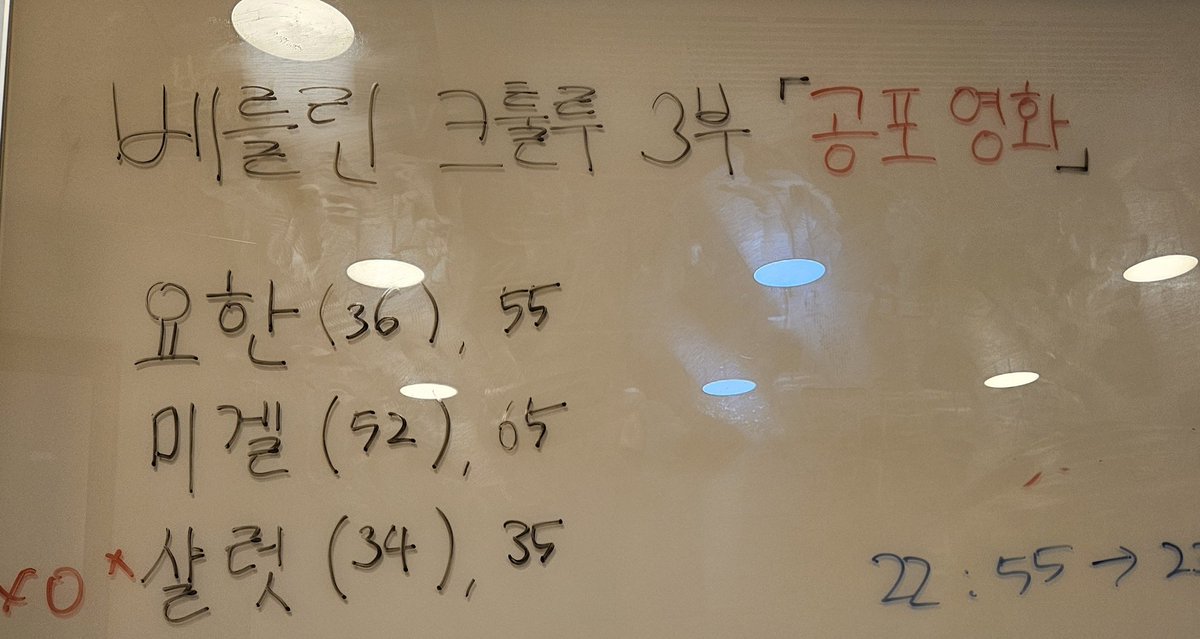 베를린 크툴루 3부 「공포 영화」
요한 (36), 55
미겔 (52), 65
* 샬럿 (34), 35
22:55 →